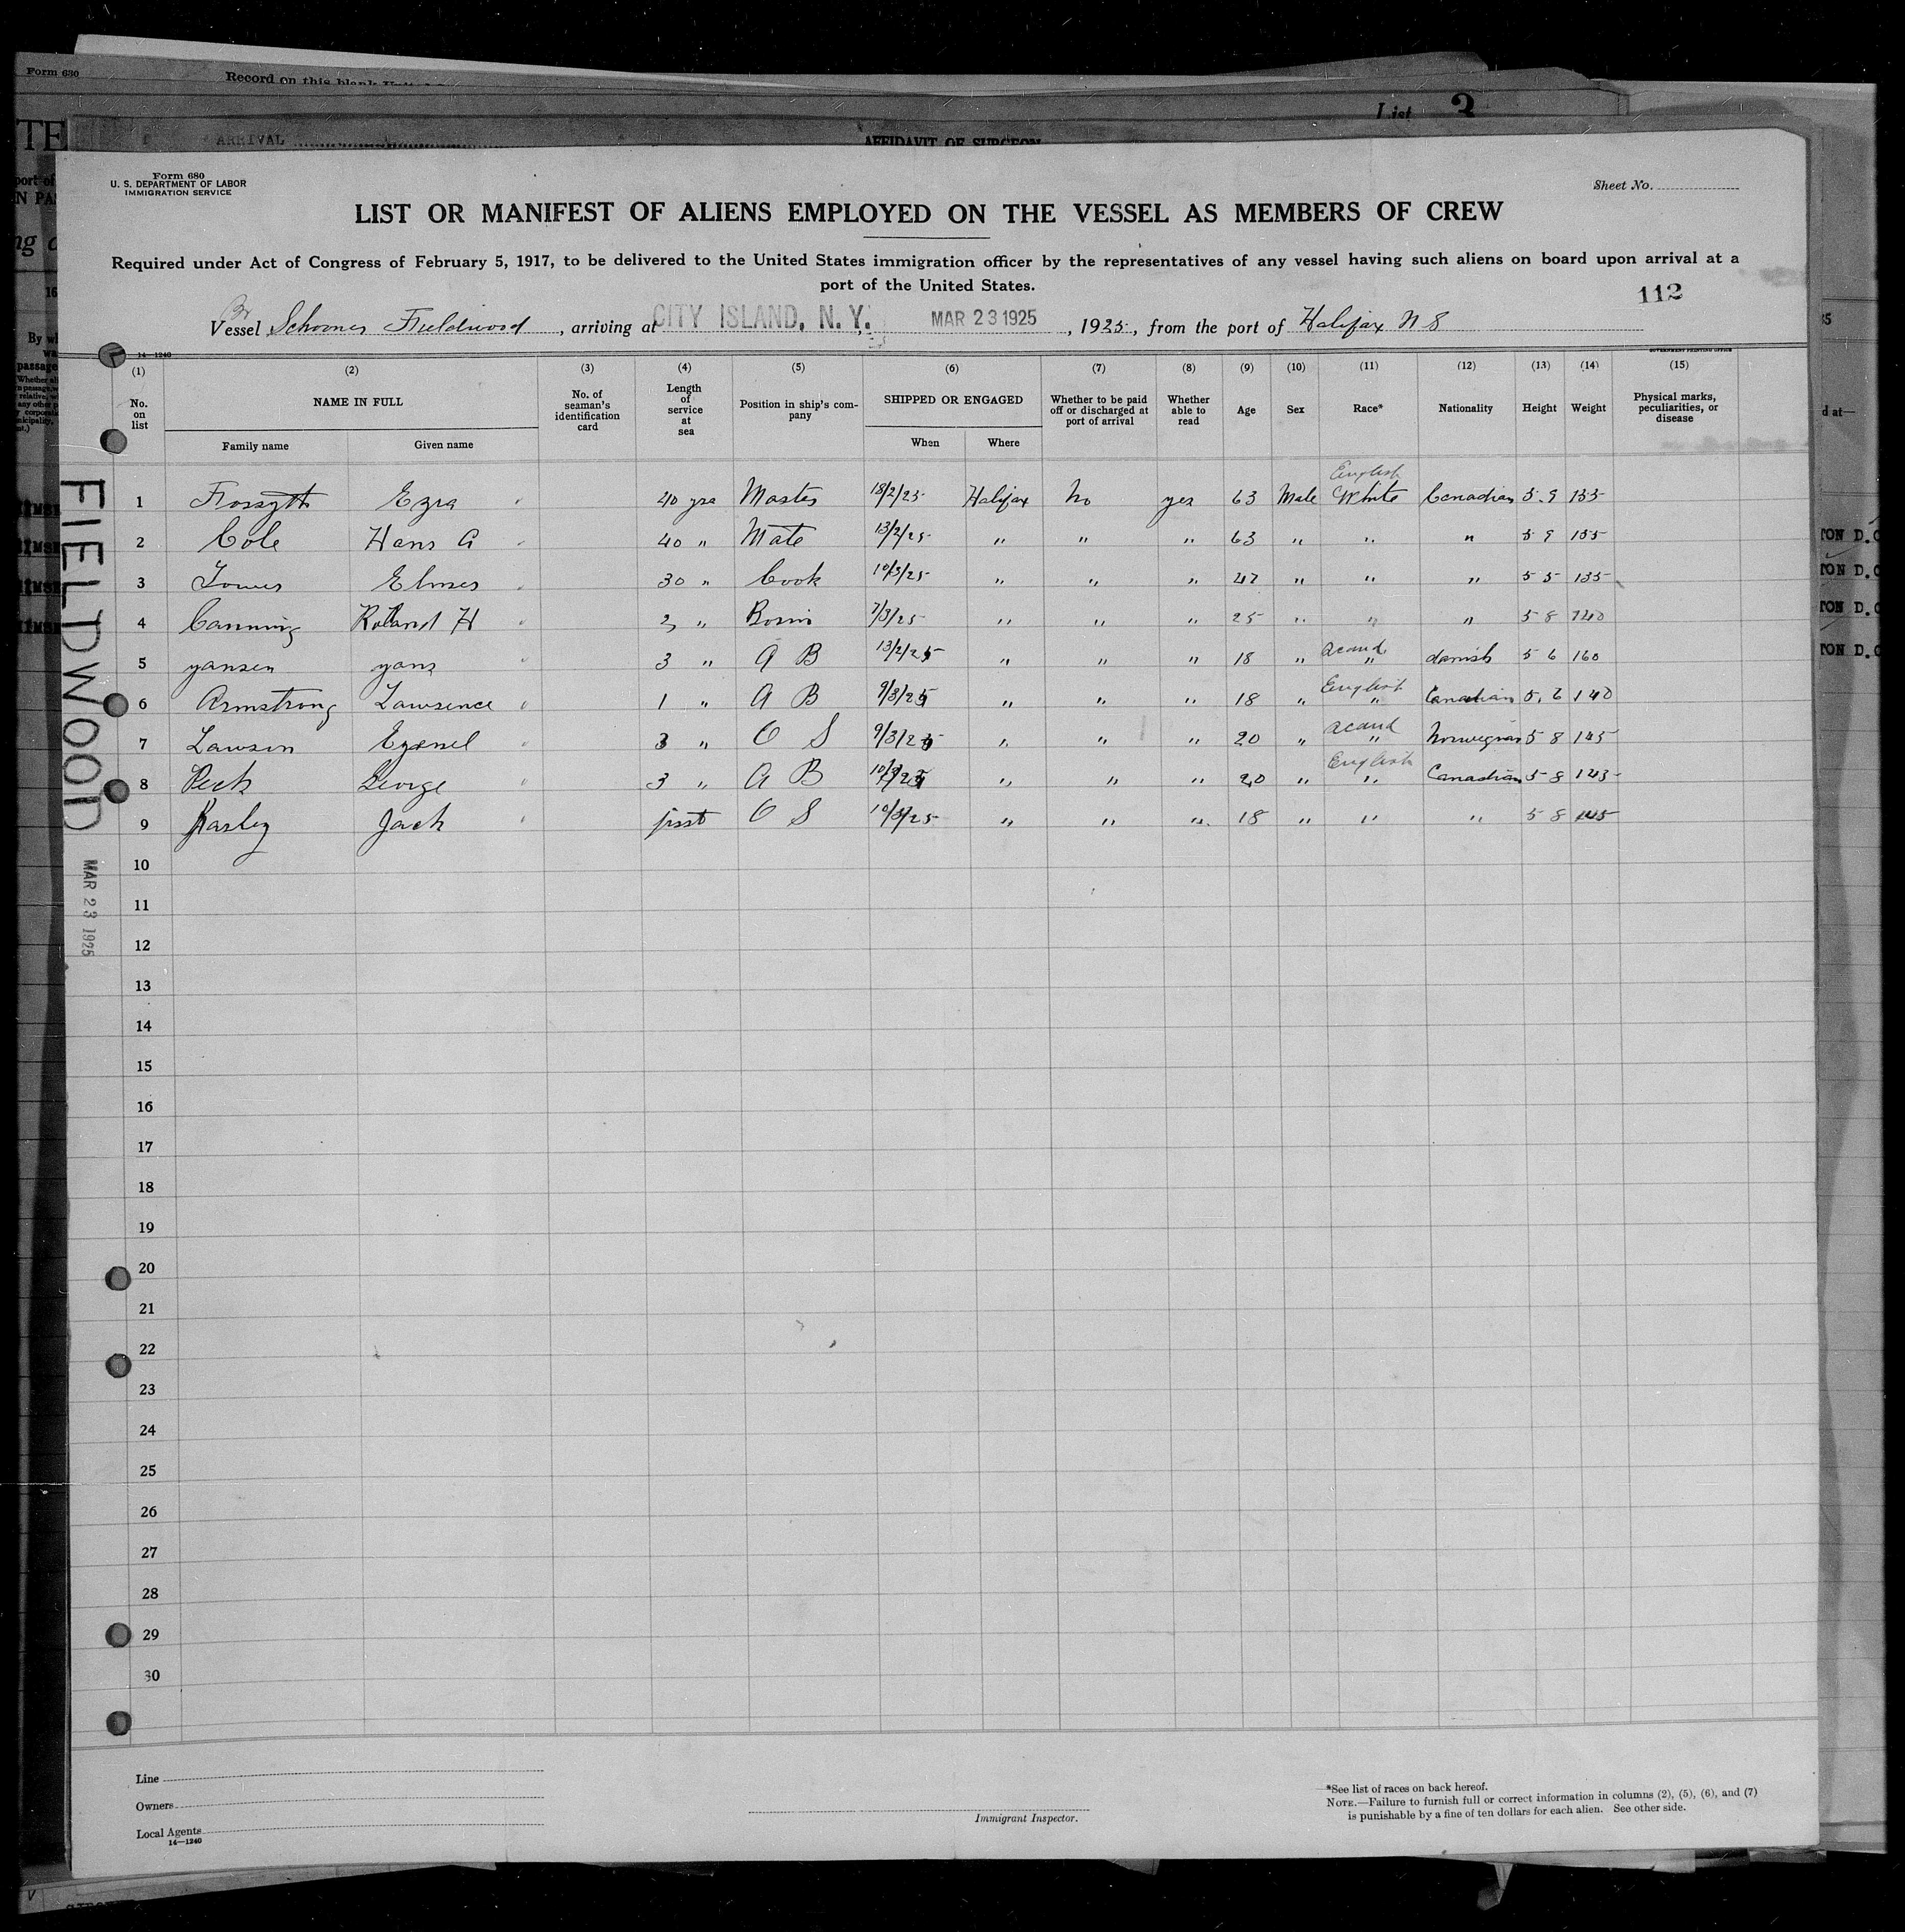 Form 630
Record on this blank
List 3
ARRIVAL
AFFIDAVIT OF SURGEON
Form 680
U. S. DEPARTMENT OF LABOR
IMMIGRATION SERVICE
Sheet No.
LIST OR MANIFEST OF ALIENS EMPLOYED ON THE VESSEL AS MEMBERS OF CREW
Required under Act of Congress of February 5, 1917, to be delivered to the United States immigration officer by the representatives of any vessel having such aliens on board upon arrival at a
port of the United States.
112
Br
Vessel Schooner Fieldwood, arriving at CITY ISLAND, N. Y., MAR 23 1925, 1925, from the port of Halifax N S
14—1240
GOVERNMENT PRINTING OFFICE
(1) (2) (3) (4) (5) (6) (7) (8) (9) (10) (11) (12) (13) (14) (15)
No. on list
NAME IN FULL
Family name
Given name
No. of seaman's identification card
Length of service at sea
Position in ship's com-pany
SHIPPED OR ENGAGED
When
Where
Whether to be paid off or discharged at port of arrival
Whether able to read
Age
Sex
Race*
Nationality
Height
Weight
Physical marks, peculiarities, or disease
English
1 Forsyth Ezra 40 yrs Master 18/2/25 Halifax No yes 63 Male White Canadian 5.9 155
2 Cole Hans A 40 " Mate 13/2/25 " " " 63 " " " 5 9 155
3 Elmer 30 " Cook 10/3/25 " " " 47 " " " 5 5 135
4 Canning Roland H 2 " Bosin 7/3/25 " " " 25 " " " 5 8 140
5 yansen yans 3 " A B 13/2/25 " " " 18 " Scand " danish 5 6 160
6 Armstrong Lawrence 1 " A B 9/3/25 " " " 18 " English " Canadian 5.6 140
7 Lawson 3 " O S 9/3/25 " " " 20 " Scand " Norwegian 5 8 145
8 Peck George 3 " A B 10/3/25 " " " 20 " English " Canadian 5 8 143
9 Jack first O S 10/3/25 " " " 18 " " " 5 8 145
10
11
12
13
14
15
16
17
18
19
20
21
22
23
24
25
26
27
28
29
30
FIELDWOOD
MAR 23 1925
Line
Owners
Local Agents
14—1240
Immigrant Inspector.
*See list of races on back hereof.
NOTE.—Failure to furnish full or correct information in columns (2), (5), (6), and (7)
is punishable by a fine of ten dollars for each alien. See other side.